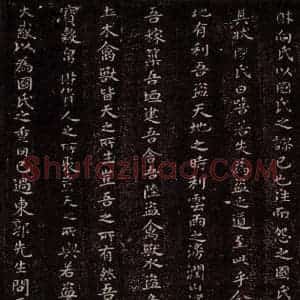 向氏以國氏之謬己也往而怨之國氏
其狀國氏曰嘻若失為盜之道至此乎今
地有利吾盜天地之時利雲雨之滂潤山
吾稼築吾垣建吾舍陸盜禽獸水盜
土木禽獸皆天之所生豈吾之所有然吾
寶穀帛財貨人之所聚豈天之所與若盜
大惑以為國氏之重罔己過東郭先生問